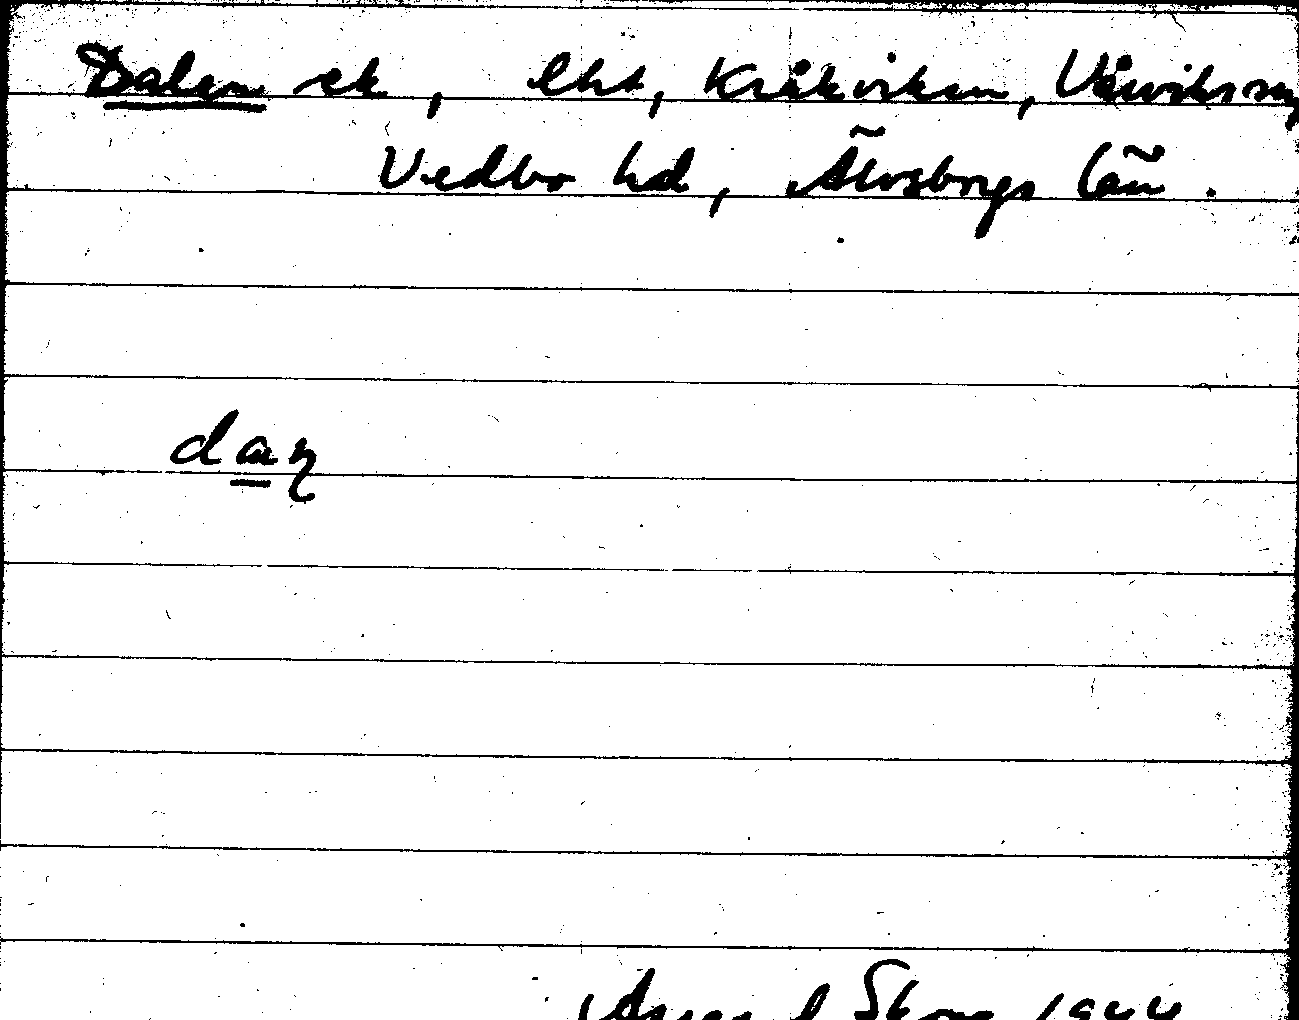 Dalen ek, lht, Kråkviken, Vårviks sn,
Vedbo hd, Älvsborgs län.
daɳ
1944